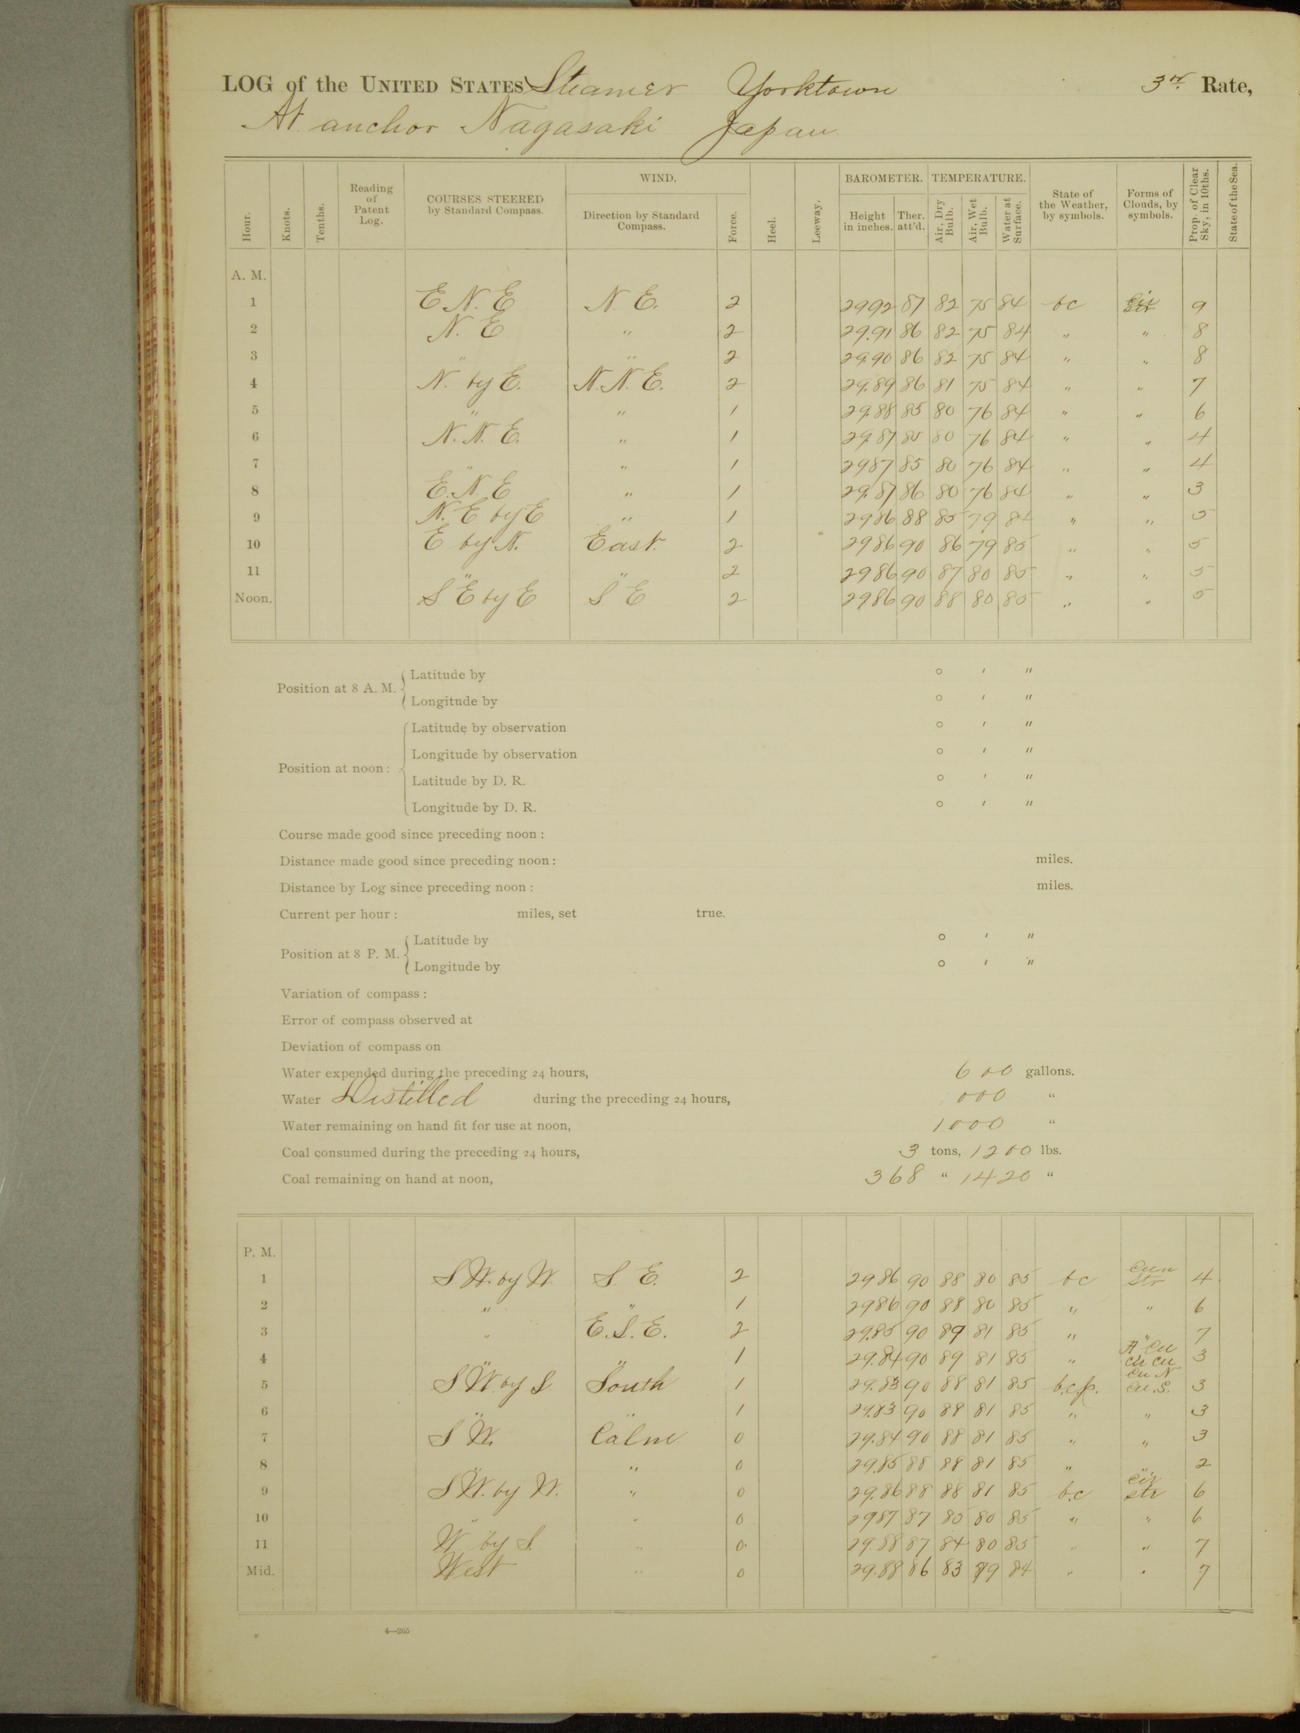 LOG of the UNITED STATES Steamer Yorktown 3rd Rate,
At anchor Nagasaki Japan
Hour. Knots. Tenths. Reading of Patent Log. COURSES STEERED by Standard Compass. WIND. Direction by Standard Compass. Force. Heel. Leeway. BAROMETER. Height in inches. Ther. att'd. TEMPERATURE. Air, Dry Bulb. Air, Wet Bulb. Water at Surface. State of the Weather, by symbols. Forms of Clouds, by symbols. Prop. of Clear Sky, in 10ths. State of the Sea.
A. M.
1 E.N.E N.E. 2 2992 87 82 75 84 bc 9
2 N.E " 2 29.91 86 82 75 84 " " 8
3 " " 2 29.90 86 82 75 84 " " 8
4 N. by E. N.N.E. 2 29.89 86 81 75 84 " " 7
5 " " 1 29.88 85 80 76 84 " " 6
6 N.N.E. " 1 29.87 85 80 76 84 " " 4
7 " " 1 2987 85 80 76 84 " " 4
8 E.N.E " 1 29.87 86 80 76 84 " " 3
9 N.E by E " 1 2986 88 85 79 84 " " 5
10 E by N. East. 2 2986 90 86 79 85 " " 5
11 " " 2 2986 90 87 80 85 " " 5
Noon. S E by E S E 2 2986 90 88 80 85 " " 5
Position at 8 A. M. Latitude by ° ' "
Longitude by ° ' "
Position at noon: Latitude by observation ° ' "
Longitude by observation ° ' "
Latitude by D. R. ° ' "
Longitude by D. R. ° ' "
Course made good since preceding noon:
Distance made good since preceding noon: miles.
Distance by Log since preceding noon: miles.
Current per hour: miles, set true.
Position at 8 P. M. Latitude by ° ' "
Longitude by ° ' "
Variation of compass:
Error of compass observed at
Deviation of compass on
Water expended during the preceding 24 hours, 600 gallons.
Water Distilled during the preceding 24 hours, 000 "
Water remaining on hand fit for use at noon, 1000 "
Coal consumed during the preceding 24 hours, 3 tons, 1200 lbs.
Coal remaining on hand at noon, 368 " 1420 "
P. M.
1 S W. by W S E. 2 2986 90 88 80 85 bc cum str 4
2 " " 1 2986 90 88 80 85 " " 6
3 " E.S.E. 2 29.85 90 89 81 85 " " 7
4 " " 1 29.84 90 89 81 85 " A Cu cir cu 3
5 S W. by S South 1 29.83 90 88 81 85 b.c.p. Cu N cu. S. 3
6 " " 1 29.83 90 88 81 85 " " 3
7 S W. Calm 0 29.84 90 88 81 85 " " 3
8 " " 0 29.85 88 88 81 85 " " 2
9 S W. by W. " 0 29.86 88 88 81 85 b.c cir str 6
10 " " 0 2987 87 85 80 85 " " 6
11 W by S. " 0 29.88 87 84 80 85 " " 7
Mid. West " 0 29.88 86 83 79 84 " " 7
4—205